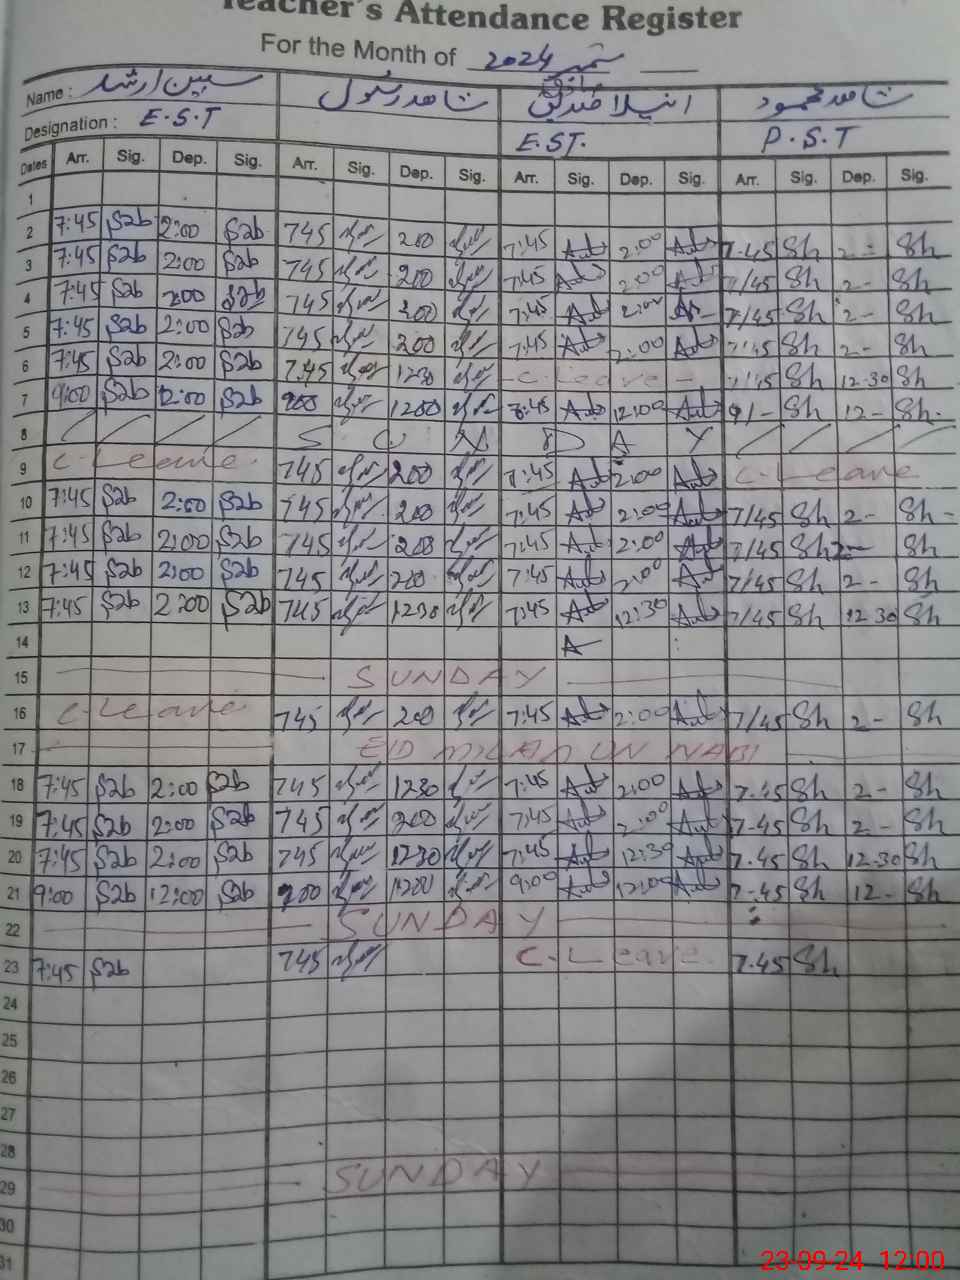 Teacher's Attendance Register
For the Month of ستمبر 2024
Name : سبین ارشد شاھد رسول انیلا شاھد محمود
Designation : E.S.T E.ST. P.S.T
Dates Arr. Sig. Dep. Sig. Arr. Sig. Dep. Sig. Arr. Sig. Dep. Sig. Arr. Sig. Dep. Sig.
1
2 7:45 Sab 2:00 Sab 745 200 7:45 2:00 7.45 Sh 2 - Sh
3 7:45 Sab 2:00 Sab 745 200 7:45 2:00 7/45 Sh 2 - Sh
4 7:45 Sab 2:00 Sab 745 200 7:45 2:00 7/45 Sh 2 - Sh
5 7:45 Sab 2:00 Sab 745 200 7:45 2:00 7/45 Sh 2 - Sh
6 7:45 Sab 2:00 Sab 7.45 1230 - C. Leave - 7/45 Sh 12-30 Sh
7 9:00 Sab 12:00 Sab 900 1200 8:45 12:00 9/- Sh 12 - Sh.
8 S U N D A Y
9 C - Leave 745 200 7:45 2:00 C - Leave
10 7:45 Sab 2:00 Sab 745 200 7:45 2:00 7/45 Sh 2 - Sh -
11 7:45 Sab 2:00 Sab 745 200 7:45 2:00 7/45 Sh 2 - Sh
12 7:45 Sab 2:00 Sab 745 200 7:45 2:00 7/45 Sh 2 - Sh
13 7:45 Sab 2:00 Sab 745 1230 7:45 12:30 7/45 Sh 12-30 Sh
14 A
15 SUNDAY
16 C - Leave 745 200 7:45 2:00 7/45 Sh 2 - Sh
17 EID MILAD UN NABI
18 7:45 Sab 2:00 Sab 745 1230 7:45 2:00 7.45 Sh 2 - Sh
19 7:45 Sab 2:00 Sab 745 200 7:45 2:00 7-45 Sh 2 - Sh
20 7:45 Sab 2:00 Sab 745 1230 7:45 12:30 7.45 Sh 12-30 Sh
21 9:00 Sab 12:00 Sab 900 1200 9:00 12:00 7-45 Sh 12 - Sh
22 SUNDAY
23 7:45 Sab 745 C. Leave 7.45 Sh
24
25
26
27
28
29 SUNDAY
30
31
23-09-24 12:00